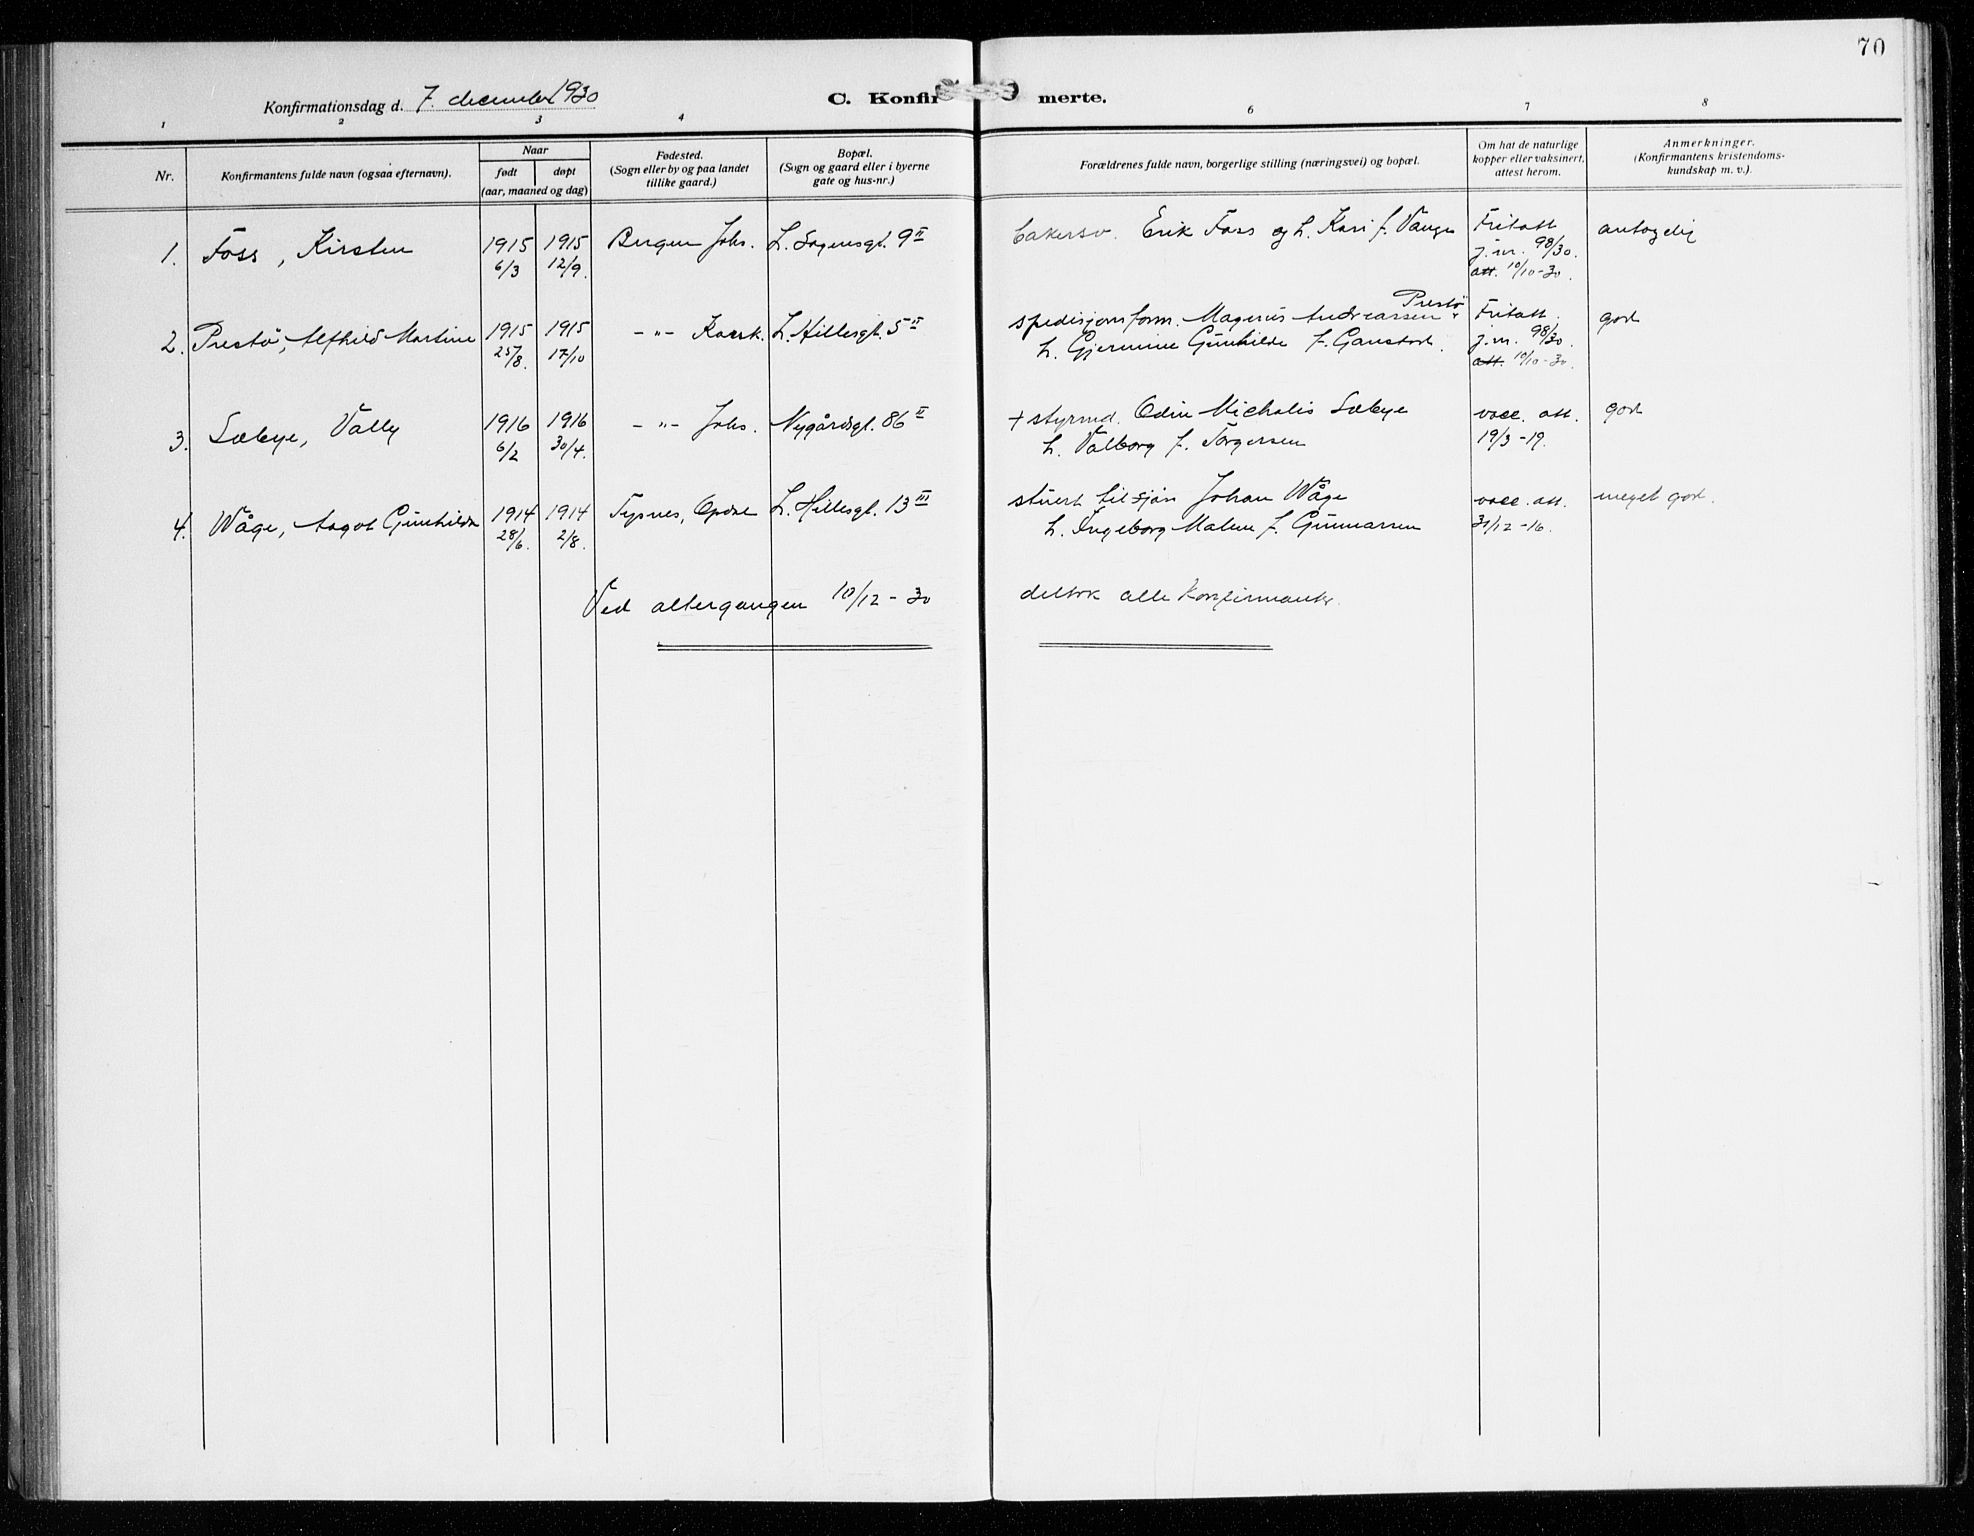 70
Konfirmationsdag d. 7. december 1930
C. Konfir merte.
1 2 3 4 6 7 8
Nr.
Konfirmantens fulde navn (ogsaa efternavn).
Naar
født døpt
(aar, maaned og dag)
Fødested.
(Sogn eller by og paa landet
tillike gaard.)
Bopæl.
(Sogn og gaard eller i byerne
gate og hus-nr.)
Forældrenes fulde navn, borgerlige stilling (næringsvei) og bopæl.
Om hat de naturlige
kopper eller vaksinert,
attest herom.
Anmerkninger.
(Konfirmantens kristendoms-
kundskap m. v.).
1. Foss, Kirsten 1915 6/3 1915 12/9. Bergen Johs. L. Sagensgt. 9 II
bakersv. Erik Foss og h. Kari f. Vange
Fritatt
j. nr. 98/30.
att. 10/10-30.
antagelig
2. Prestø, Alfhild Martine 1915 25/8. 1915 17/10 -"- Korsk. L. Hillesgt. 5 II
Prestø
spedisjonsform. Magnus Andreassen
h. Gjermine Gunhilde f. Ganstad.
Fritatt.
j. nr. 98/30.
att. 10/10-30.
god
3. Sæbye, Vally 1916 6/2 1916 30/4. -"- Johs. Nygårdsgt. 86 II
+ styrmd. Odin Michalis Sæbye
h. Valborg f. Torgersen
vacc. att.
19/3-19.
god
4. Wåge, Aagot Gunhilde 1914 28/6. 1914 2/8. Tysnes, Opdal L. Hillesgt. 13 III
stuert tilsjøs Johan Wåge
h. Ingeborg Malene f. Gunnarsen
vacc. att.
31/12-16.
meget god.
Ved altergangen 10/12-30 deltok alle konfirmanter.